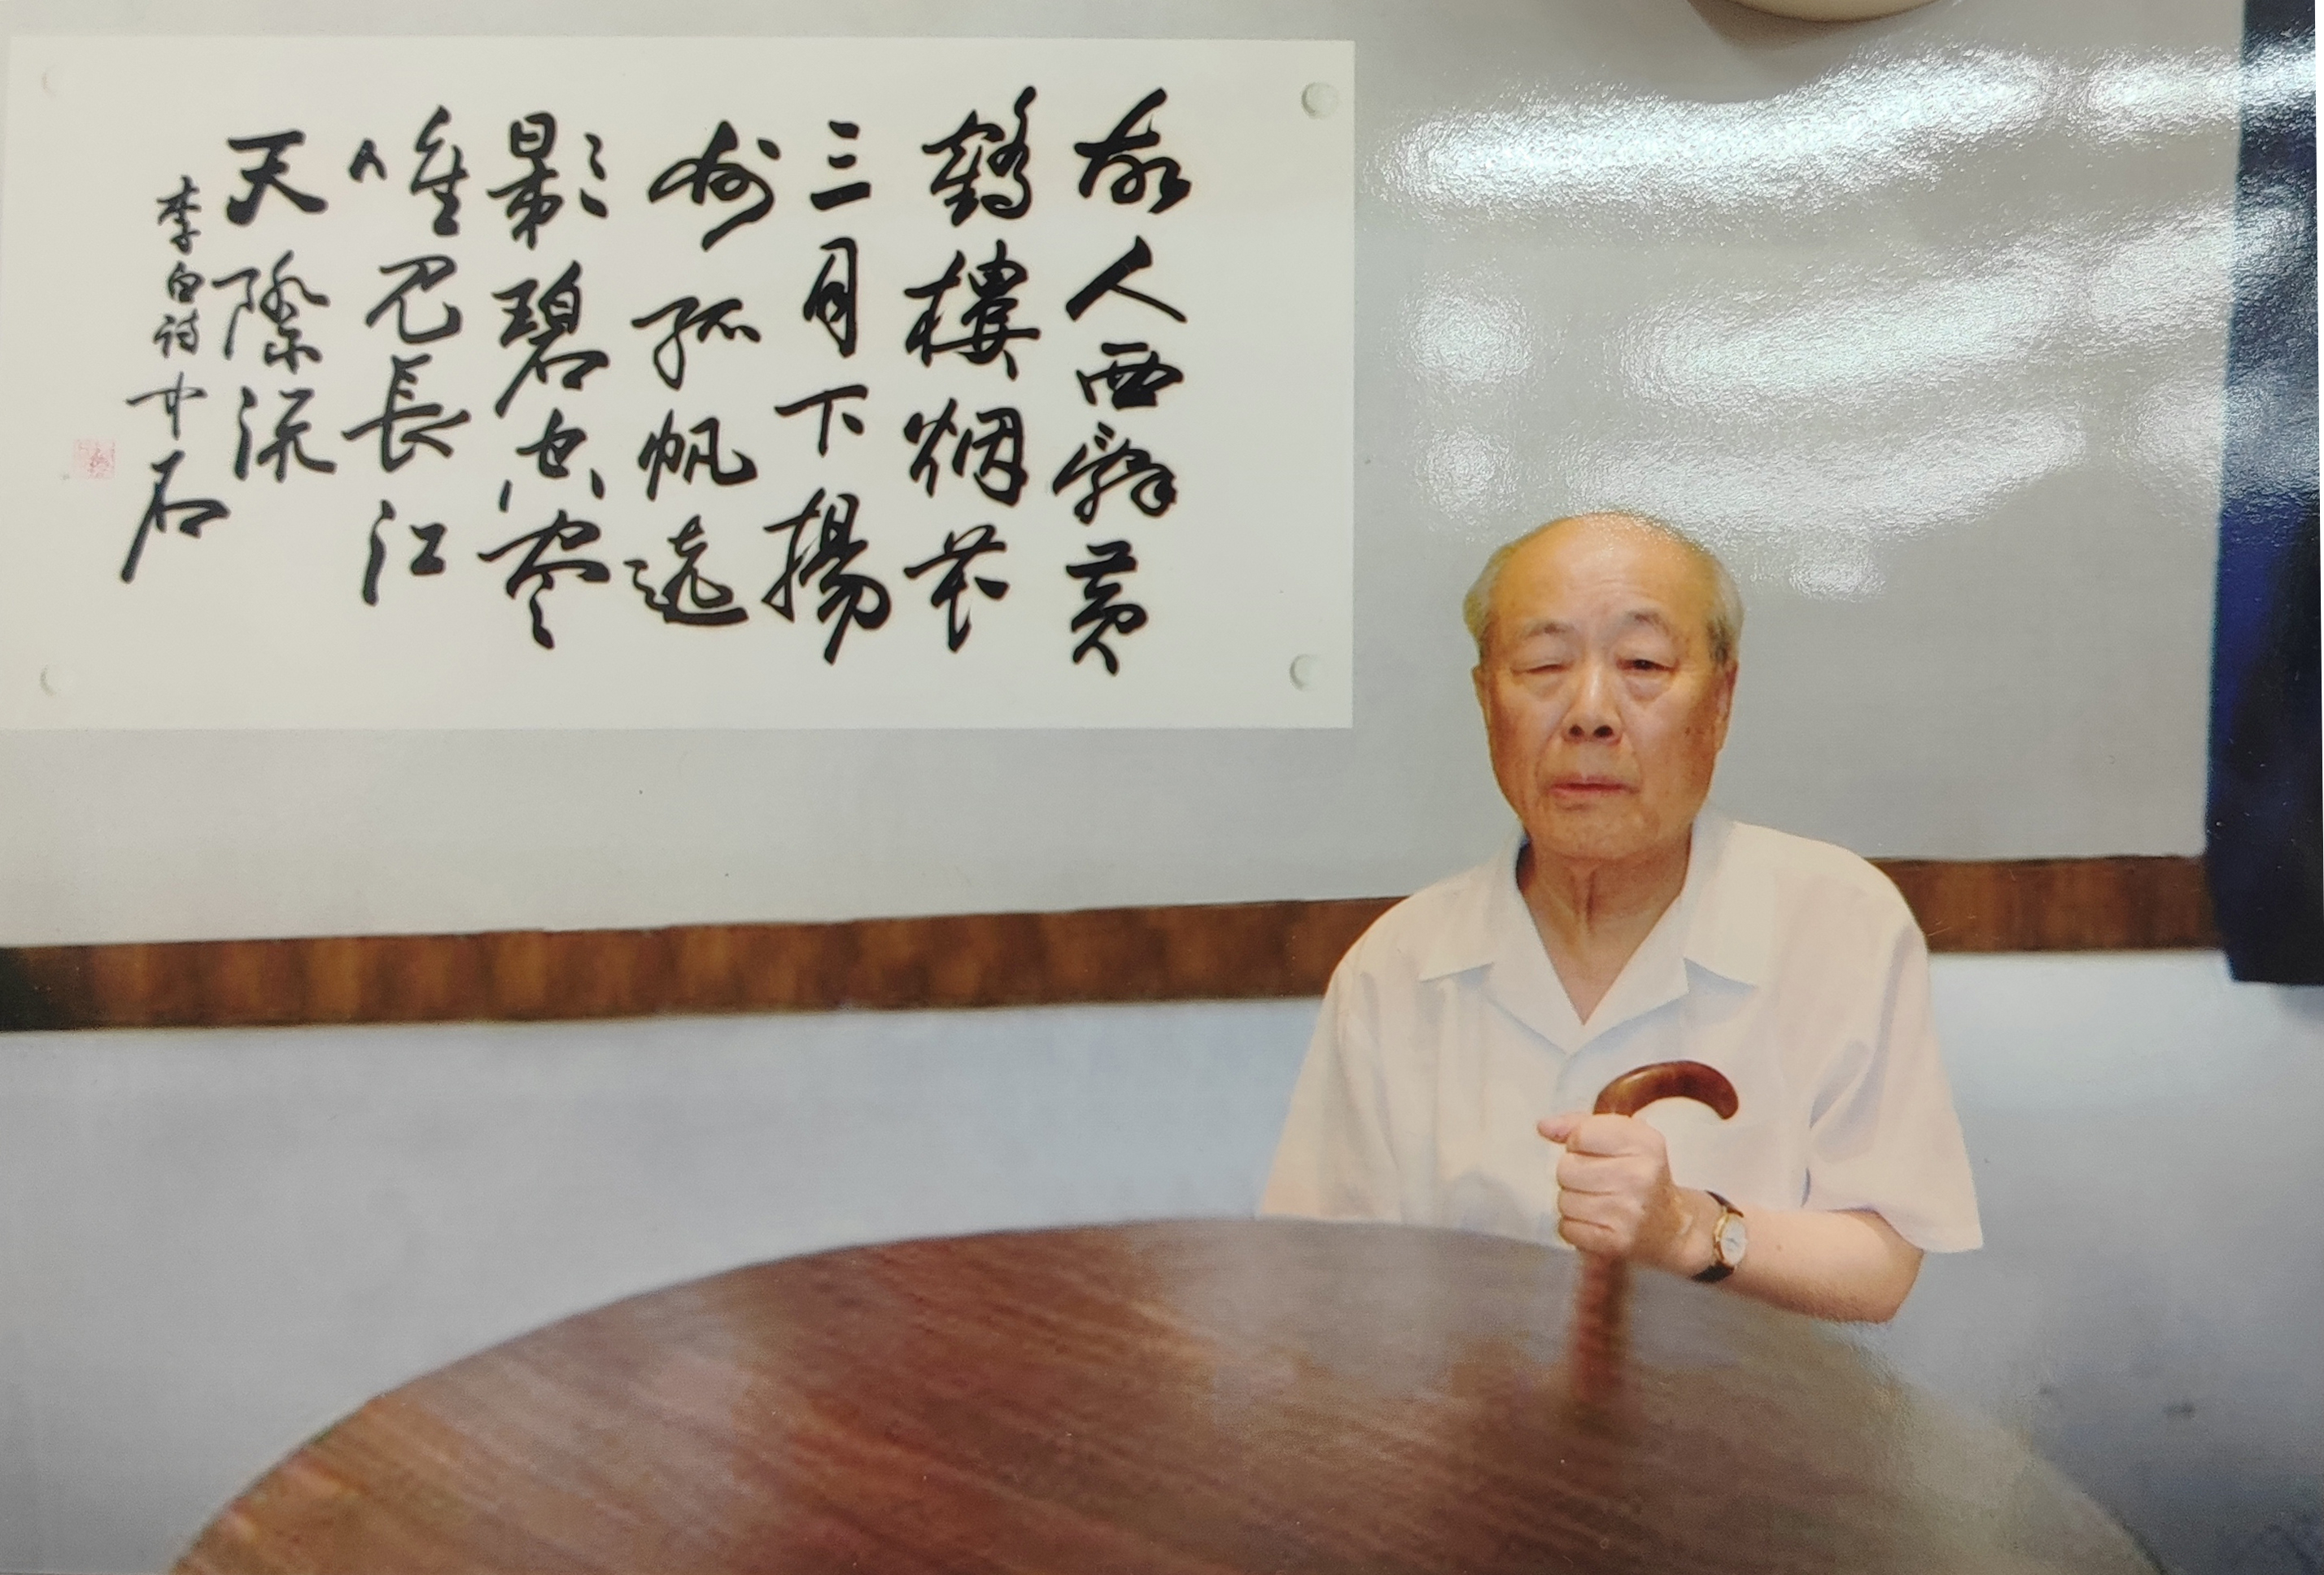 故人西辭黃
鶴樓烟花
三月下揚
州孤帆遠
影碧空盡
唯見長江
天際流
李白詩中石